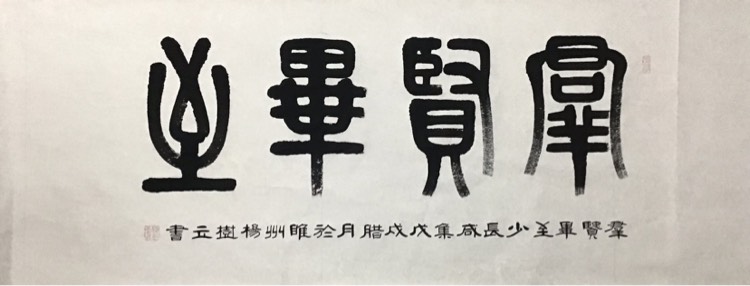 羣賢畢至
羣賢畢至少長咸集戊戌腊月於睢州楊樹立書